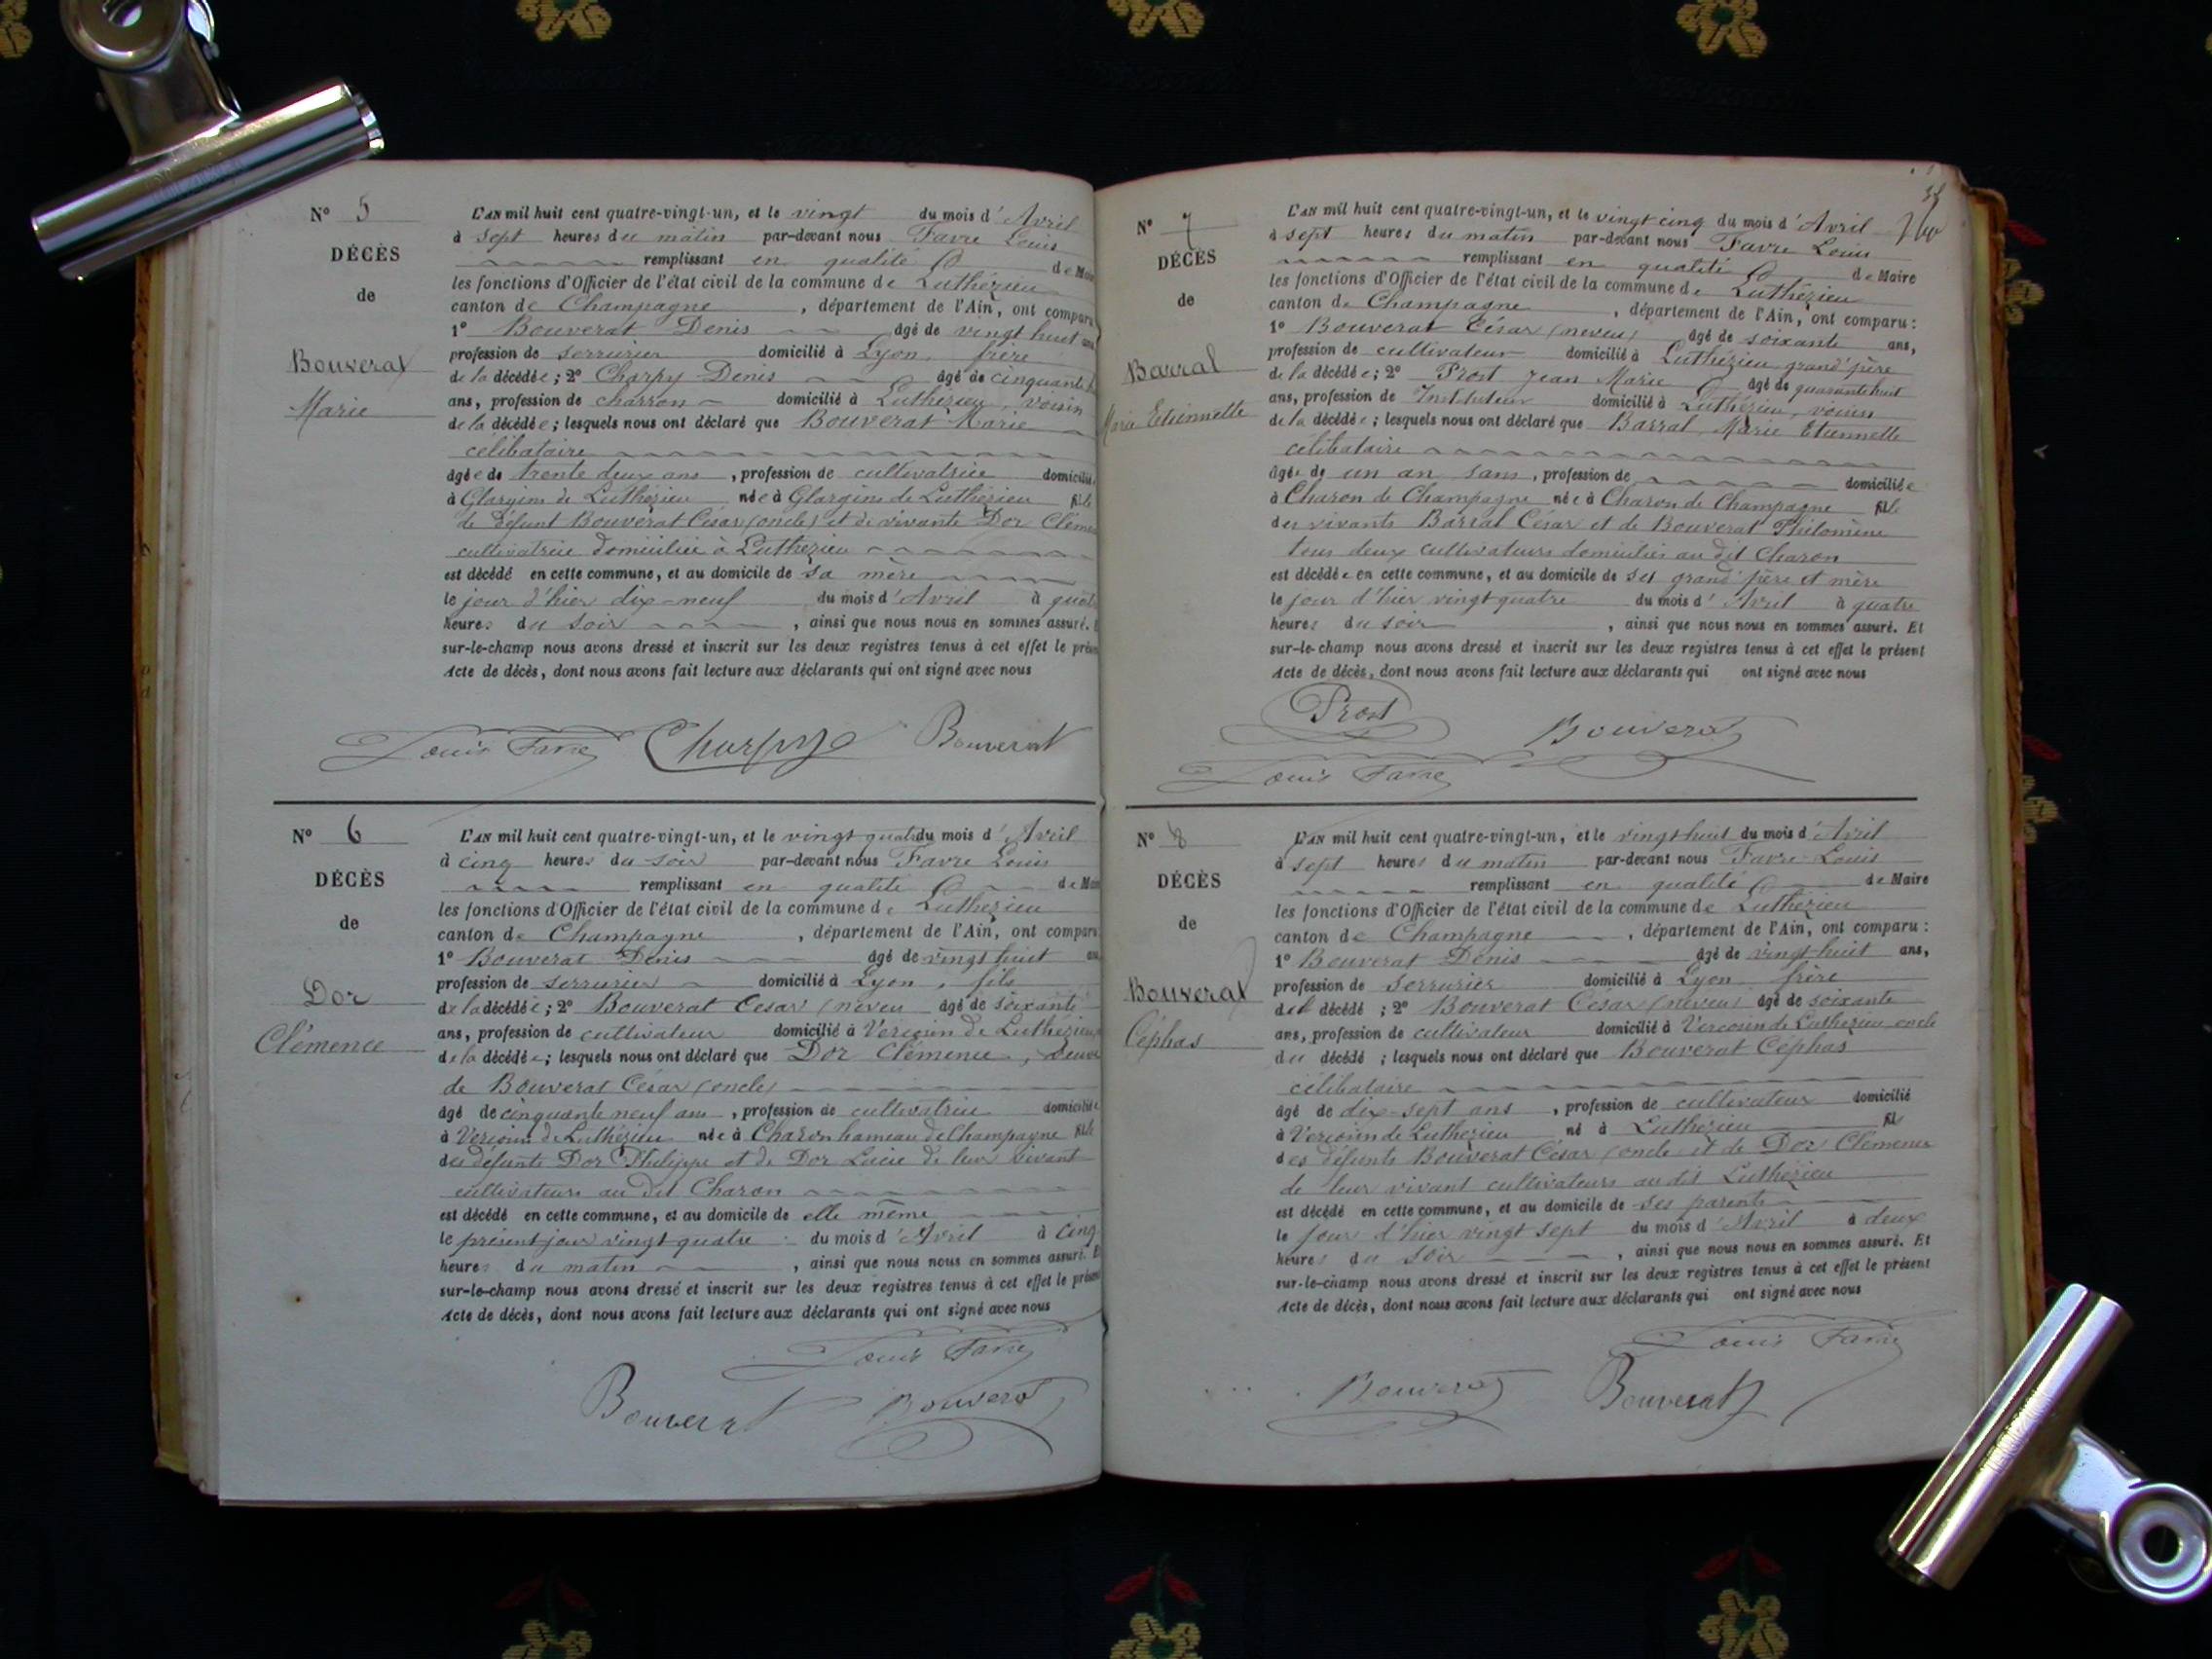 N° 5
DÉCÈS
de
Bouverat
Marie
L'AN mil huit cent quatre-vingt-un, et le vingt du mois d'Avril
à sept heures du matin par-devant nous Favre Louis
remplissant en qualité de Mai
les fonctions d'Officier de l'état civil de la commune de Luthézieu
canton de Champagne, département de l'Ain, ont comparu
1° Bouverat Denis âgé de vingt huit ans
profession de serrurier domicilié à Lyon, frère
de la décédée; 2° Charpy Denis âgé de cinquante
ans, profession de charron domicilié à Luthézieu, voisin
de la décédée; lesquels nous ont déclaré que Bouverat Marie
célibataire
âgée de trente deux ans, profession de cultivatrice domicilié
à Glargins de Luthézieu née à Glargins de Luthézieu fille
de défunt Bouverat César (oncle) et de vivante Dor Cléme
cultivatrice domiciliée à Luthézieu
est décédé en cette commune, et au domicile de sa mère
le jour d'hier dix-neuf du mois d'Avril à quat
heures du soir, ainsi que nous nous en sommes assuré. E
sur-le-champ nous avons dressé et inscrit sur les deux registres tenus à cet effet le prése
Acte de décès, dont nous avons fait lecture aux déclarants qui ont signé avec nous
Louis Favre Charpy Bouverat
N° 6
DÉCÈS
de
Dor
Clémence
L'AN mil huit cent quatre-vingt-un, et le vingt quatre du mois d'Avril
à cinq heures du soir par-devant nous Favre Louis
remplissant en qualité de Mai
les fonctions d'Officier de l'état civil de la commune de Luthézieu
canton de Champagne, département de l'Ain, ont comparu
1° Bouverat Denis âgé de vingt huit an
profession de serrurier domicilié à Lyon, fils
de la décédée; 2° Bouverat César (neveu âgé de soixante
ans, profession de cultivateur domicilié à Vercosin de Luthézieu
de la décédée; lesquels nous ont déclaré que Dor Clémence, veuve
de Bouverat César (oncle)
âgé de cinquante neuf ans, profession de cultivatrice domicilié
à Vercosin de Luthézieu née à Charon hameau de Champagne fille
des défunts Dor Philippe et de Dor Lucie de leur vivant
cultivateurs au dit Charon
est décédé en cette commune, et au domicile de elle même
le présent jour vingt quatre du mois d'Avril à cinq
heures du matin, ainsi que nous nous en sommes assuré. E
sur-le-champ nous avons dressé et inscrit sur les deux registres tenus à cet effet le présen
Acte de décès, dont nous avons fait lecture aux déclarants qui ont signé avec nous
Louis Favre
Bouverat Bouverat
N° 7
DÉCÈS
de
Barral
Marie Etiennette
L'AN mil huit cent quatre-vingt-un, et le vingt cinq du mois d'Avril
à sept heures du matin par-devant nous Favre Louis
remplissant en qualité de Maire
les fonctions d'Officier de l'état civil de la commune de Luthézieu
canton de Champagne, département de l'Ain, ont comparu :
1° Bouverat César (neveu) âgé de soixante ans,
profession de cultivateur domicilié à Luthézieu grand'père
de la décédée; 2° Prost Jean Marie âgé de quarante huit
ans, profession de Instituteur domicilié à Luthézieu, voisin
de la décédée; lesquels nous ont déclaré que Barral Marie Etiennette
célibataire
âgée de un an sans, profession de domiciliée
à Charon de Champagne née à Charon de Champagne fille
des vivants Barral César et de Bouverat Philomène
tous deux cultivateurs domiciliés au dit Charon
est décédée en cette commune, et au domicile de ses grand'père et mère
le jour d'hier vingt quatre du mois d'Avril à quatre
heures du soir, ainsi que nous nous en sommes assuré. Et
sur-le-champ nous avons dressé et inscrit sur les deux registres tenus à cet effet le présent
Acte de décès, dont nous avons fait lecture aux déclarants qui ont signé avec nous
Prost Bouverat
Louis Favre
N° 8
DÉCÈS
de
Bouverat
Céphas
L'AN mil huit cent quatre-vingt-un, et le vingt huit du mois d'Avril
à sept heures du matin par-devant nous Favre Louis
remplissant en qualité de Maire
les fonctions d'Officier de l'état civil de la commune de Luthézieu
canton de Champagne, département de l'Ain, ont comparu :
1° Bouverat Denis âgé de vingt-huit ans,
profession de serrurier domicilié à Lyon frère
du décédé ; 2° Bouverat César (neveu) âgé de soixante
ans, profession de cultivateur domicilié à Vercosin de Luthézieu oncle
du décédé ; lesquels nous ont déclaré que Bouverat Céphas
célibataire
âgé de dix-sept ans, profession de cultivateur domicilié
à Vercosin de Luthézieu né à Luthézieu fil
des défunts Bouverat César (oncle et de Dor Clémence
de leur vivant cultivateurs au dit Luthézieu
est décédé en cette commune, et au domicile de ses parents
le jour d'hier vingt sept du mois d'Avril à deux
heures du soir, ainsi que nous nous en sommes assuré. Et
sur-le-champ nous avons dressé et inscrit sur les deux registres tenus à cet effet le présent
Acte de décès, dont nous avons fait lecture aux déclarants qui ont signé avec nous
Louis Favre
Bouverat Bouverat